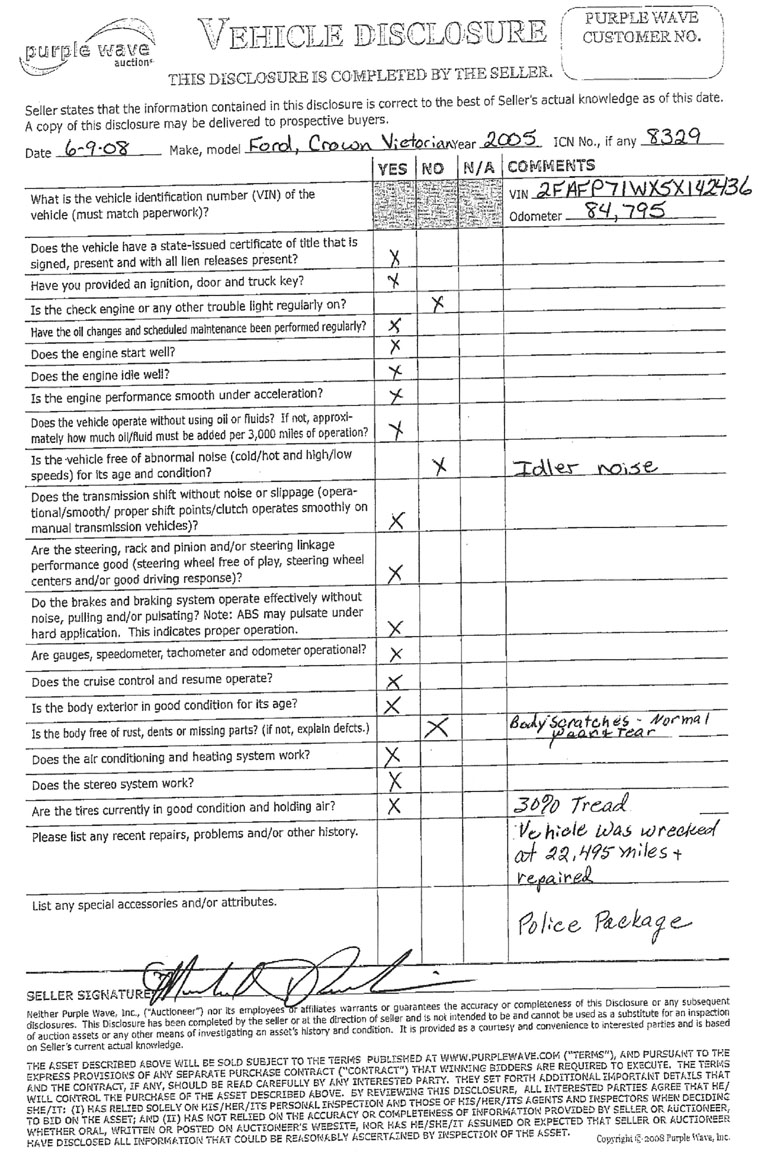 purple wave
auction®
VEHICLE DISCLOSURE
PURPLE WAVE
CUSTOMER NO.
THIS DISCLOSURE IS COMPLETED BY THE SELLER.
Seller states that the information contained in this disclosure is correct to the best of Seller's actual knowledge as of this date.
A copy of this disclosure may be delivered to prospective buyers.
Date 6-9-08 Make, model Ford, Crown Victorian Year 2005 ICN No., if any 8329
YES NO N/A COMMENTS
What is the vehicle identification number (VIN) of the
vehicle (must match paperwork)?
VIN 2FAFP71WX5X142436
Odometer 84,795
Does the vehicle have a state-issued certificate of title that is
signed, present and with all lien releases present? X
Have you provided an ignition, door and truck key? X
Is the check engine or any other trouble light regularly on? X
Have the oil changes and scheduled maintenance been performed regularly? X
Does the engine start well? X
Does the engine idle well? X
Is the engine performance smooth under acceleration? X
Does the vehicle operate without using oil or fluids? If not, approxi-
mately how much oil/fluid must be added per 3,000 miles of operation? X
Is the vehicle free of abnormal noise (cold/hot and high/low
speeds) for its age and condition? X Idler noise
Does the transmission shift without noise or slippage (opera-
tional/smooth/ proper shift points/clutch operates smoothly on
manual transmission vehicles)? X
Are the steering, rack and pinion and/or steering linkage
performance good (steering wheel free of play, steering wheel
centers and/or good driving response)? X
Do the brakes and braking system operate effectively without
noise, pulling and/or pulsating? Note: ABS may pulsate under
hard application. This indicates proper operation. X
Are gauges, speedometer, tachometer and odometer operational? X
Does the cruise control and resume operate? X
Is the body exterior in good condition for its age? X
Is the body free of rust, dents or missing parts? (if not, explain defcts.) X Body Scratches - Normal
wear & tear
Does the air conditioning and heating system work? X
Does the stereo system work? X
Are the tires currently in good condition and holding air? X 30% Tread
Please list any recent repairs, problems and/or other history. Vehicle was wrecked
at 22,495 miles +
repaired
List any special accessories and/or attributes.
Police Package
SELLER SIGNATURE
Neither Purple Wave, Inc., ("Auctioneer") nor its employees or affiliates warrants or guarantees the accuracy or completeness of this Disclosure or any subsequent
disclosures. This Disclosure has been completed by the seller or at the direction of seller and is not intended to and cannot be used as a substitute for an inspection
of auction assets or any other means of investigating an asset's history and condition. It is provided as a courtesy and convenience to interested parties and is based
on Seller's current actual knowledge.
THE ASSET DESCRIBED ABOVE WILL BE SOLD SUBJECT TO THE TERMS PUBLISHED AT WWW.PURPLEWAVE.COM ("TERMS"), AND PURSUANT TO THE
EXPRESS PROVISIONS OF ANY SEPARATE PURCHASE CONTRACT ("CONTRACT") THAT WINNING BIDDERS ARE REQUIRED TO EXECUTE. THE TERMS
AND THE CONTRACT, IF ANY, SHOULD BE READ CAREFULLY BY ANY INTERESTED PARTY. THEY SET FORTH ADDITIONAL IMPORTANT DETAILS THAT
WILL CONTROL THE PURCHASE OF THE ASSET DESCRIBED ABOVE. BY REVIEWING THIS DISCLOSURE, ALL INTERESTED PARTIES AGREE THAT HE/
SHE/IT: (I) HAS RELIED SOLELY ON HIS/HER/ITS PERSONAL INSPECTION AND THOSE OF HIS/HER/ITS AGENTS AND INSPECTORS WHEN DECIDING
TO BID ON THE ASSET; AND (II) HAS NOT RELIED ON THE ACCURACY OR COMPLETENESS OF INFORMATION PROVIDED BY SELLER OR AUCTIONEER,
WHETHER ORAL, WRITTEN OR POSTED ON AUCTIONEER'S WEBSITE, NOR HAS HE/SHE/IT ASSUMED OR EXPECTED THAT SELLER OR AUCTIONEER
HAVE DISCLOSED ALL INFORMATION THAT COULD BE REASONABLY ASCERTAINED BY INSPECTION OF THE ASSET.
Copyright © 2008 Purple Wave, Inc.